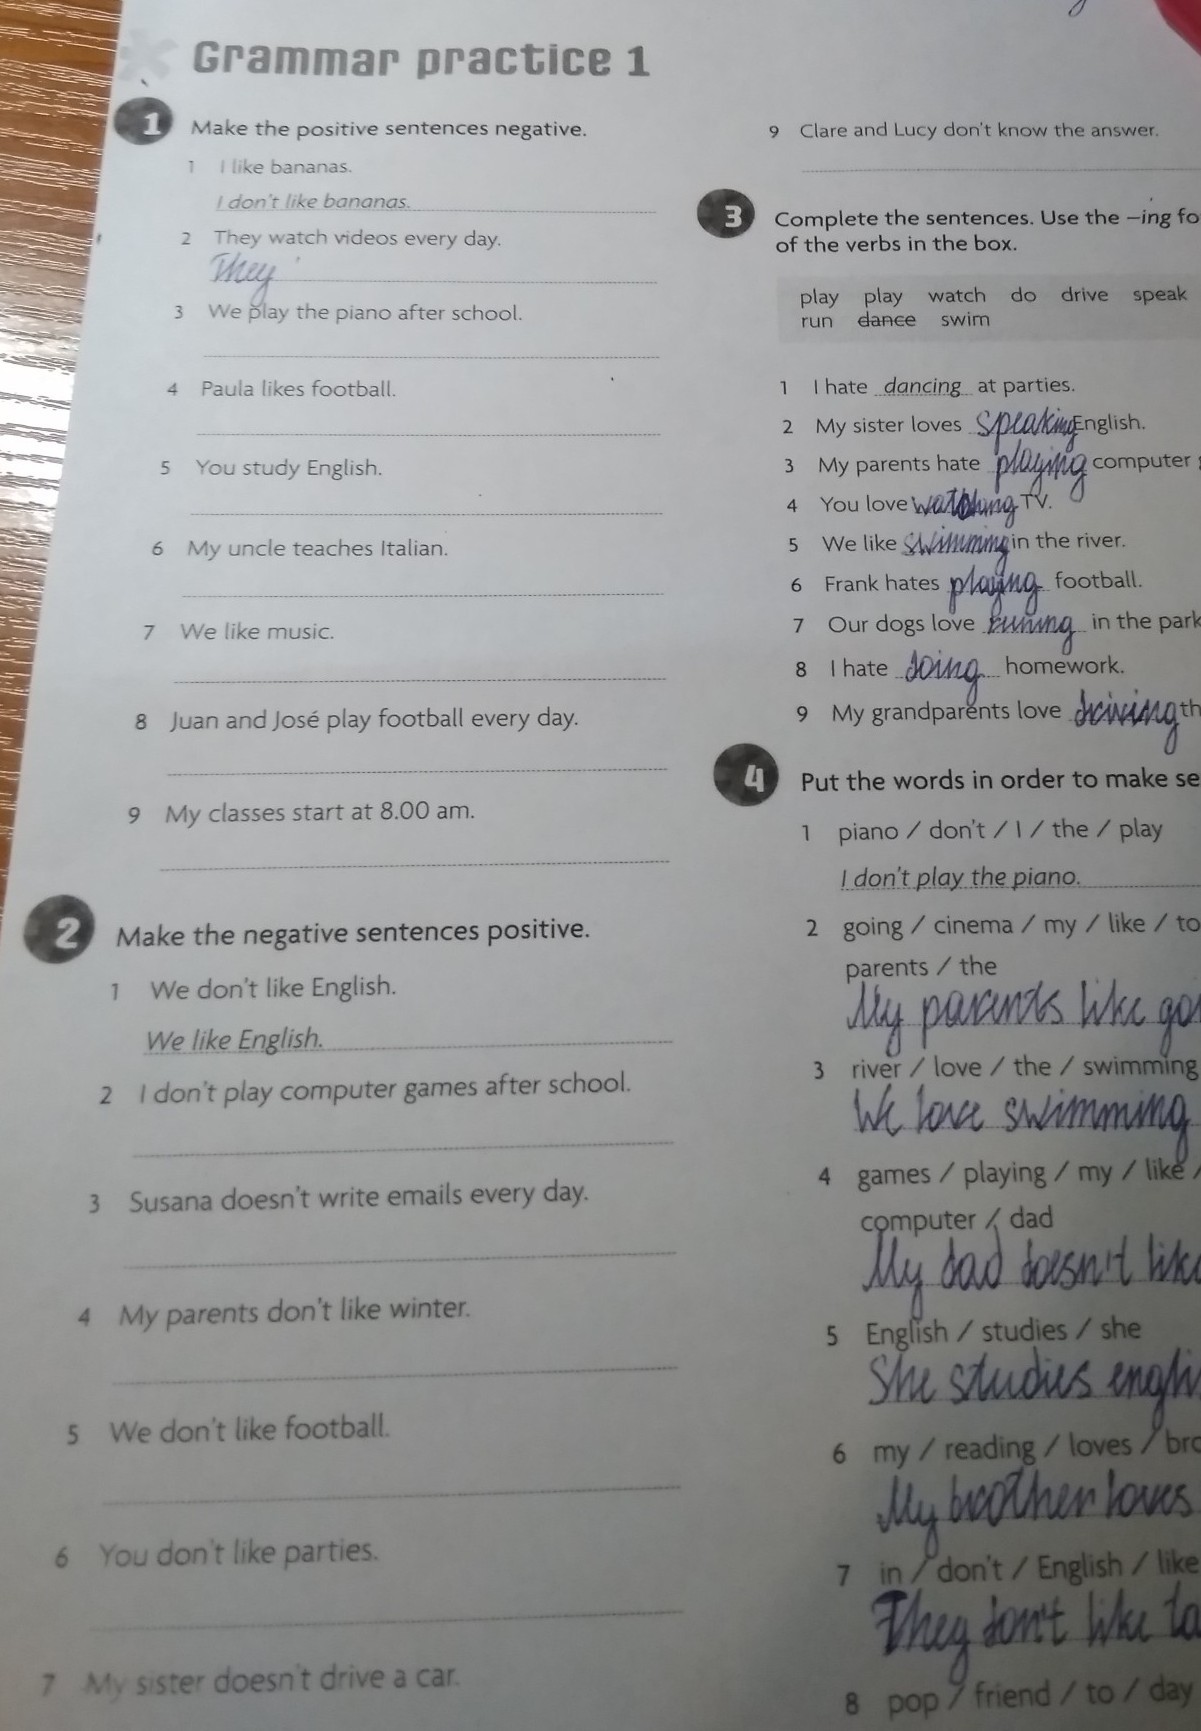 Grammar practice 1
1 Make the positive sentences negative.
1 I like bananas.
I don't like bananas.
2 They watch videos every day.
They
3 We play the piano after school.
4 Paula likes football.
5 You study English.
6 My uncle teaches Italian.
7 We like music.
8 Juan and José play football every day.
9 My classes start at 8.00 am.
2 Make the negative sentences positive.
1 We don't like English.
We like English.
2 I don't play computer games after school.
3 Susana doesn't write emails every day.
4 My parents don't like winter.
5 We don't like football.
6 You don't like parties.
7 My sister doesn't drive a car.
9 Clare and Lucy don't know the answer.
3 Complete the sentences. Use the –ing fo
of the verbs in the box.
play play watch do drive speak
run dance swim
1 I hate dancing at parties.
2 My sister loves speaking English.
3 My parents hate playing computer
4 You love watching TV.
5 We like swimming in the river.
6 Frank hates playing football.
7 Our dogs love runing in the park
8 I hate doing homework.
9 My grandparents love driving th
4 Put the words in order to make se
1 piano / don't / I / the / play
I don't play the piano.
2 going / cinema / my / like / to
parents / the
My parents like goi
3 river / love / the / swimming
We love swimming
4 games / playing / my / like /
computer / dad
My dad doesn't like
5 English / studies / she
She studies engli
6 my / reading / loves / bro
My brother loves
7 in / don't / English / like
They don't like ta
8 pop / friend / to / day